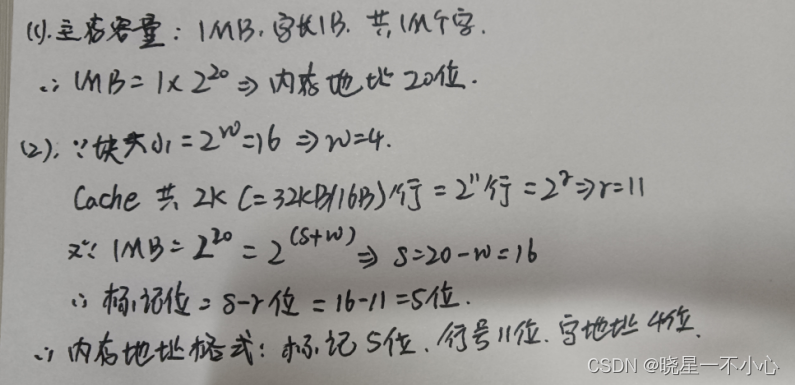 (1).主存容量：1MB.字长1B.共1M个字.
∴ 1MB=1×2²⁰⇒内存地址20位.
(2).∵块大小=2ʷ=16⇒w=4.
Cache共2K(=32KB/16B)行=2¹¹行=2ʳ⇒r=11
又∵1MB=2²⁰=2⁽ˢ⁺ʷ⁾⇒s=20-w=16
∴标记位=s-r位=16-11=5位.
∴内存地址格式：标记5位、行号11位、字地址4位.
CSDN @晓星一不小心